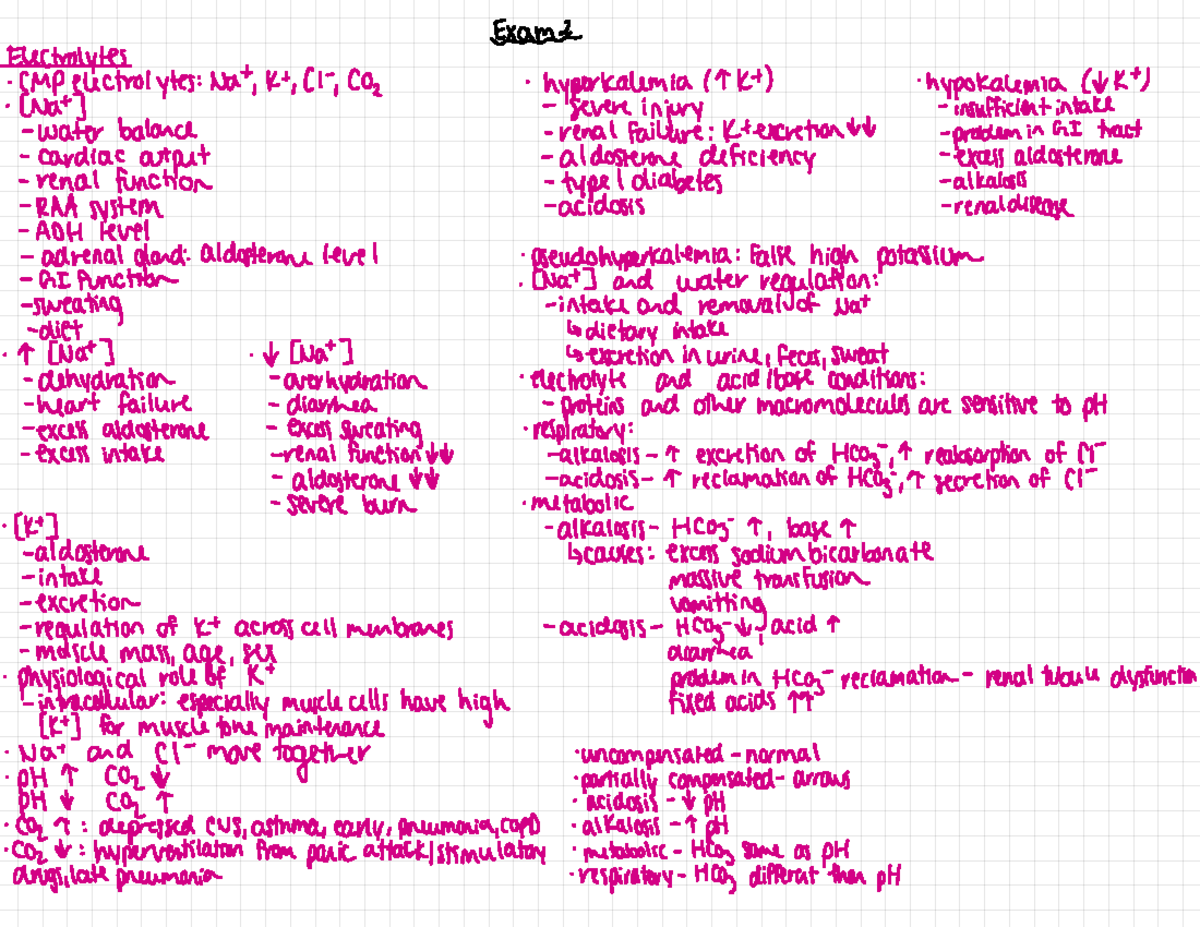 Exam 2
Electrolytes
· CMP electrolytes: Na⁺, K⁺, Cl⁻, CO₂
· [Na⁺]
- water balance
- cardiac output
- renal function
- RAA system
- ADH level
- adrenal gland: aldosterone level
- GI function
- sweating
- diet
· ↑ [Na⁺]
- dehydration
- heart failure
- excess aldosterone
- excess intake
· ↓ [Na⁺]
- overhydration
- diarrhea
- excess sweating
- renal function ↓↓
- aldosterone ↓↓
- severe burn
· [K⁺]
- aldosterone
- intake
- excretion
- regulation of K⁺ across cell membranes
- muscle mass, age, sex
· physiological role of K⁺
- intracellular: especially muscle cells have high
[K⁺] for muscle tone maintenance
· Na⁺ and Cl⁻ move together
· pH ↑ CO₂ ↓
pH ↓ CO₂ ↑
· CO₂ ↑: depressed CNS, asthma, early, pneumonia, COPD
· CO₂ ↓: hyperventilation from panic attack/stimulatory
drugs, late pneumonia
· hyperkalemia (↑ K⁺)
- severe injury
- renal failure: K⁺ excretion ↓↓
- aldosterone deficiency
- type 1 diabetes
- acidosis
· hypokalemia (↓ K⁺)
- insufficient intake
- problem in GI tract
- excess aldosterone
- alkalosis
- renal disease
· pseudohyperkalemia: false high potassium
· [Na⁺] and water regulation:
- intake and removal of Na⁺
↳ dietary intake
↳ excretion in urine, feces, sweat
· electrolyte and acid/base conditions:
- proteins and other macromolecules are sensitive to pH
· respiratory:
- alkalosis - ↑ excretion of HCO₃⁻, ↑ reabsorption of Cl⁻
- acidosis - ↑ reclamation of HCO₃⁻, ↑ secretion of Cl⁻
· metabolic
- alkalosis - HCO₃⁻ ↑, base ↑
↳ causes: excess sodium bicarbonate
massive transfusion
vomitting
- acidosis - HCO₃⁻ ↓, acid ↑
diarrhea
problem in HCO₃⁻ reclamation - renal tubule dysfunction
fixed acids ↑↑
· uncompensated - normal
· partially compensated - arrows
· acidosis - ↓ pH
· alkalosis - ↑ pH
· metabolic - HCO₃ same as pH
· respiratory - HCO₃ differat than pH